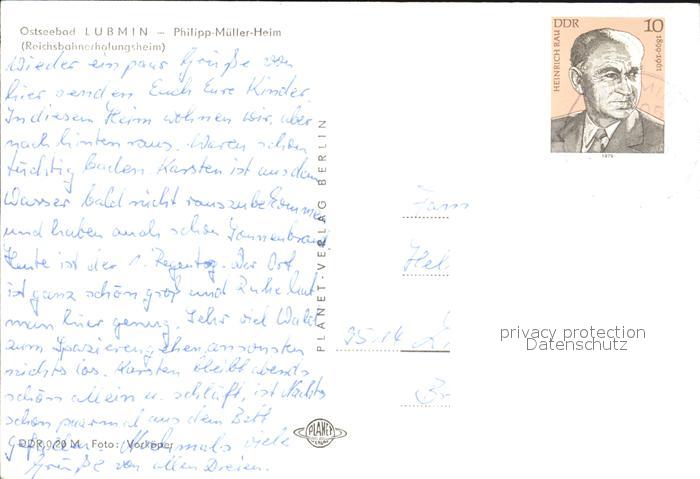 Ostseebad LUBMIN – Philipp-Müller-Heim
(Reichsbahnerholungsheim)
Wieder ein paar Grüße von
hier senden Euch Eure Kinder.
In diesem Heim wohnen wir, aber
nach hinten raus. Waren schon
tüchtig baden. Karsten ist aus dem
Wasser bald nicht rauszubekommen
und haben auch schon Sonnenbrand
Heute ist der 1. Regentag. Der Ort
ist ganz schön groß und Ruhe hat
man hier genug. Sehr viel Wald
zum Spazierengehen, ansonsten
nichts los. Karsten bleibt abends
schön allein u. schläft, ist Nachts
schon paarmal aus dem Bett
gefallen. Nochmals viele
Grüße von allen Dreien.
DDR 0,20 M Foto: Vorköper
PLANET-VERLAG BERLIN
PLANET
VERLAG
DDR 10
HEINRICH RAU
1899-1961
1979
Fam
Hel
9514
privacy protection
Datenschutz